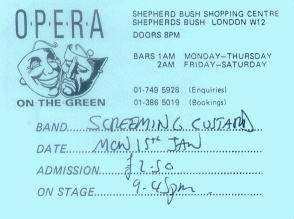 O·P·E·R·A
ON THE GREEN
SHEPHERD BUSH SHOPPING CENTRE
SHEPHERDS BUSH LONDON W12
DOORS 8PM
BARS 1AM MONDAY–THURSDAY
2AM FRIDAY–SATURDAY
01-749 5928 (Enquiries)
01-386 5019 (Bookings)
BAND SCREEMING CUSTARD
DATE MON 15TH JAN
ADMISSION £2-50
ON STAGE 9-45pm